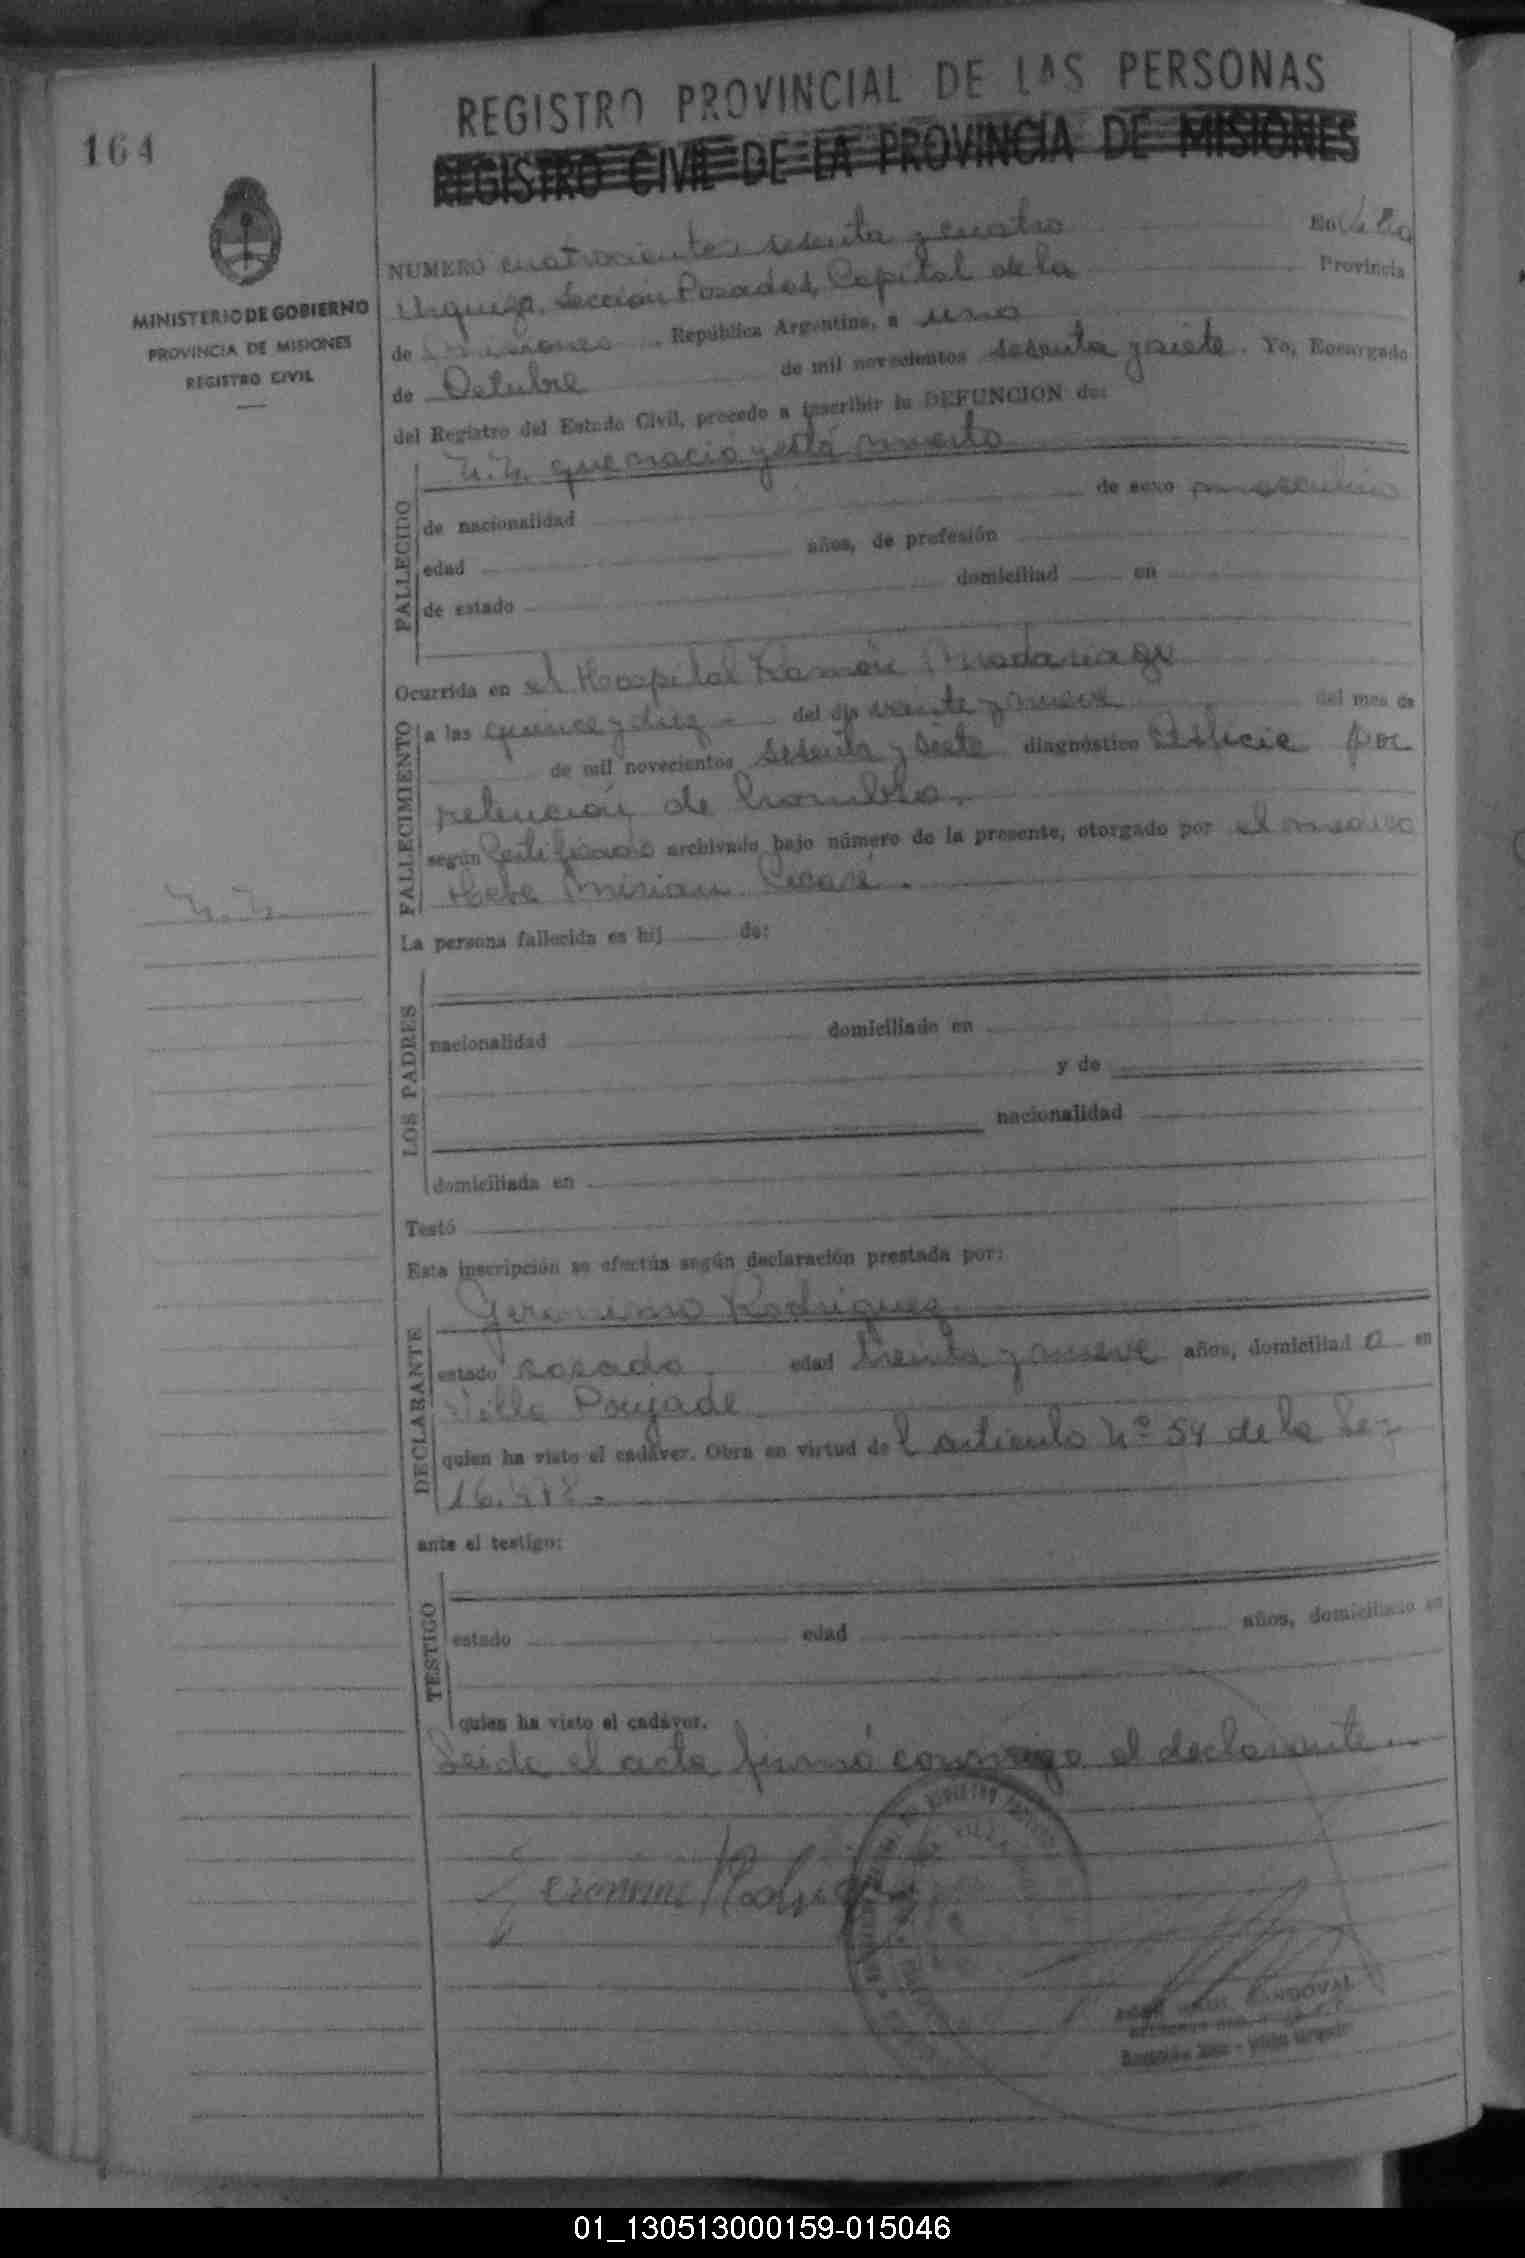 REGISTRO PROVINCIAL DE LAS PERSONAS
REGISTRO CIVIL DE LA PROVINCIA DE MISIONES
164
MINISTERIO DE GOBIERNO
PROVINCIA DE MISIONES
REGISTRO CIVIL
NUMERO cuatrocientos sesenta y cuatro En Villa
Urquiza, Sección Posadas, Capital de la Provincia
de Misiones República Argentina, a uno
de Octubre de mil novecientos sesenta y siete. Yo, Encargado
del Registro del Estado Civil, procedo a inscribir la DEFUNCION de:
FALLECIDO
N.N. que nació y está muerto
de nacionalidad de sexo masculino
edad años, de profesión
de estado domiciliad en
Ocurrida en el Hospital Ramón Madariaga
FALLECIMIENTO
a las quince y diez del día veinte y nueve del mes de
de mil novecientos sesenta y siete diagnóstico Asficie por
retención de hombro.
según Certificado archivado bajo número de la presente, otorgado por el medico
Hebe Mirian
N.N.
La persona fallecida es hij de:
LOS PADRES
nacionalidad domiciliado en
y de
nacionalidad
domiciliada en
Testó
Esta inscripción se efectúa según declaración prestada por:
DECLARANTE
Geronimo Rodriguez
estado casado edad treinta y nueve años, domiciliad o en
Villa Poujade
quien ha visto el cadáver. Obra en virtud de l articulo Nº 54 de la Ley
ante el testigo:
TESTIGO
estado edad años, domiciliado en
quien ha visto el cadáver.
Leida el acta firmó conmigo el declarante
Geronimo Rodriguez
SANDOVAL
01_130513000159-015046